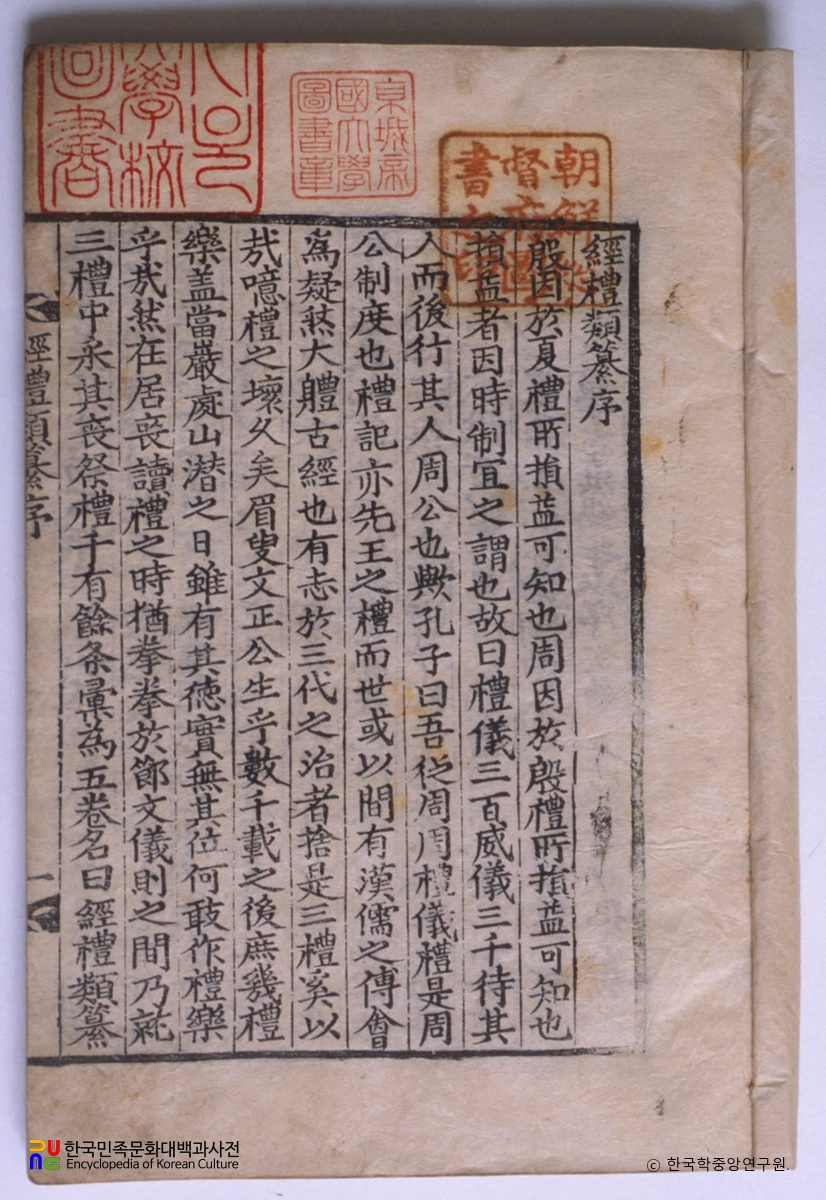 經禮類纂序
殷因於夏禮所損益可知也周因於殷禮所損益可知也
損益者因時制宜之謂也故曰禮儀三百威儀三千待其
人而後行其人周公也歟孔子曰吾從周周禮儀禮是周
公制度也禮記亦先王之禮而世或以間有漢儒之傅會
爲疑然大體古經也有志於三代之治者捨是三禮奚以
㢤噫禮之壞久矣眉叟文正公生乎數千載之後庶幾禮
樂盖當巖處山潜之日雖有其德實無其位何敢作禮樂
乎㢤然在居喪讀禮之時猶拳拳於節文儀則之間乃就
三禮中釆其喪祭禮千有餘条彙為五卷名曰經禮類纂
經禮類纂序
一
京城帝國大學圖書章
學校
圖書
朝鮮
督府圖
書
한국민족문화대백과사전
Encyclopedia of Korean Culture
© 한국학중앙연구원.